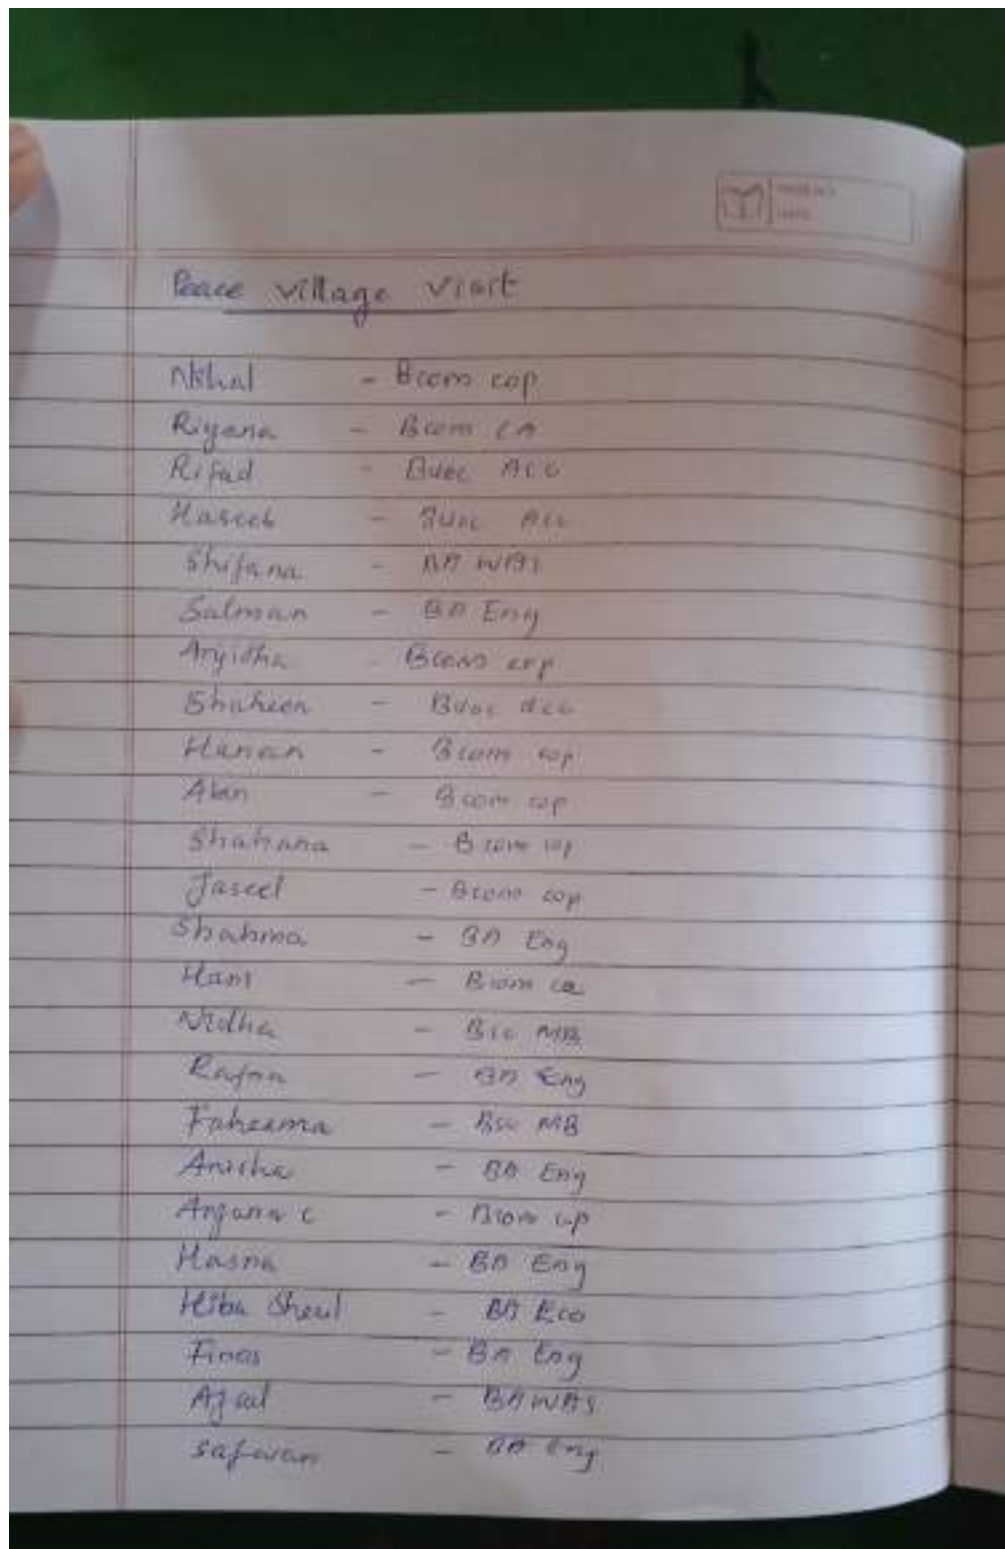 Peace village visit
Nehal - Bcom cop
Riyana - Bcom CA
Rifad - Bvoc Acc
Haseeb - Bvoc Acc
Shifana - BA WAS
Salman - BA Eng
Bcom cop
Shaheen - Bvoc Acc
Hanan - Bcom cop
- Bcom cop
Shahana - Bcom cop
Jaseel - Bcom cop
Shahma - BA Eng
Hani - Bcom ca
Nidha - Bsc MB
- BA Eng
Faheema - Bsc MB
Anisha - BA Eng
Anjana C - Bcom cop
Hasna - BA Eng
Hiba - BA Eco
Finas - BA Eng
Afsal - BA WAS
Safwan - BA Eng